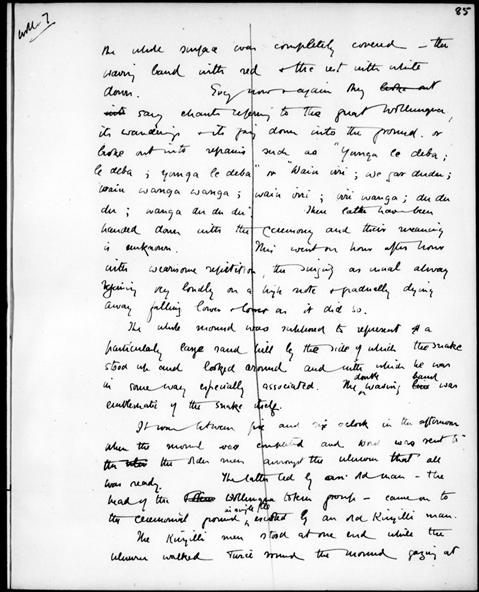 85
Woll. 7
the whole surface was completely covered – the
waving band with red & the rest with white
down. Every now & again they broke out
into say chants referring to the great Wollunqua,
its wanderings & its going down into the ground, or
broke out into refrains such as "Yanga le deba;
le deba; yanga le deba" or "Wain irri; we gar dudu;
wain wanga wanga; wain irri; irri wanga; du du
du; wanga du du du". These latter have been
handed down with the ceremony and their meaning
is unknown. This went on hour after hour
with wearisome repetition, the singing as usual always
beginning very loudly on a high note & gradually dying
away falling lower & lower as it did so.
The whole mound was supposed to represent a
particularly large sand hill by the side of which the snake
stood up and looked around and with which he was
in some way especially associated. The double waving band was
emblematic of the snake itself.
It was between five and six o'clock in the afternoon
when the mound was completed and word was sent to
the older men amongst the Uluuru that all
was ready. The latter led by an old man – the
head of the Wollunqua totem group – came on to
the ceremonial ground in single file escorted by an old Kingilli man.
The Kingilli men stood at one end while the
Uluuru walked twice round the mound gazing at